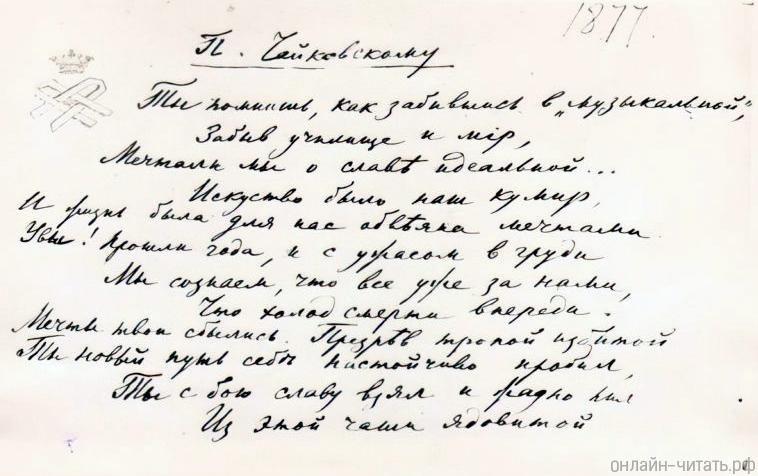 1877.
П. Чайковскому
Ты помнишь, как забившись в „музыкальной",
Забыв училище и мір,
Мечтали мы о славѣ идеальной...
Искуство было наш кумир,
И жизнь была для нас обвѣяна мечтами.
Увы! Прошли года, и с ужасом в груди
Мы сознаем, что все уже за нами,
Что холод смерти впереди.
Мечты твои сбылись. Презрѣв тропой избитой
Ты новый путь себѣ настойчиво пробил,
Ты с бою славу взял и жадно пил
Из этой чаши ядовитой
онлайн-читать.рф